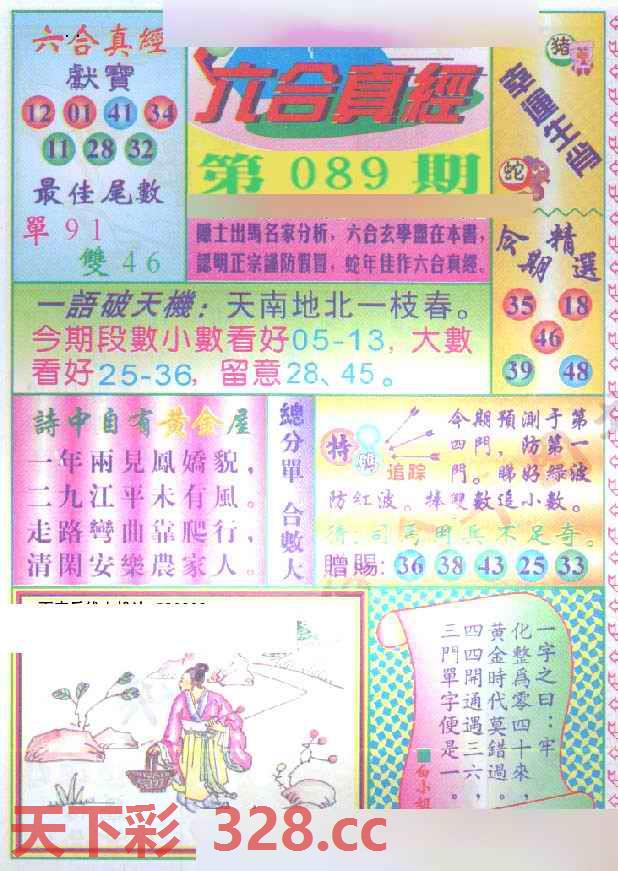 六合真經
獻寶
12 01 41 34
11 28 32
最佳尾數
單 9 1
雙 4 6
六合真經
第 089 期
隱士出馬名家分析，六合玄學盡在本書，
認明正宗謹防假冒，蛇年佳作六合真經。
豬
蛇
今期
精選
35 18
46
39 48
一語破天機：天南地北一枝春。
今期段數小數看好05-13，大數
看好25-36，留意28、45。
詩中自有黃金屋
一年兩見鳳嬌貌，
二九江平未有風。
走路彎曲靠爬行，
清閑安樂農家人。
總分單 合數大
特碼
追踪
今期預測于第
四門，防第一
門。睇好綠波
防紅波。捧雙數追小數。
猜：司馬用兵不足奇。
贈賜：36 38 43 25 33
一字之曰：牢
化整爲零四十來，
黃金時代莫錯過。
四四開通遇三六，
三門單字便是一。
白小姐
天下彩 328.cc